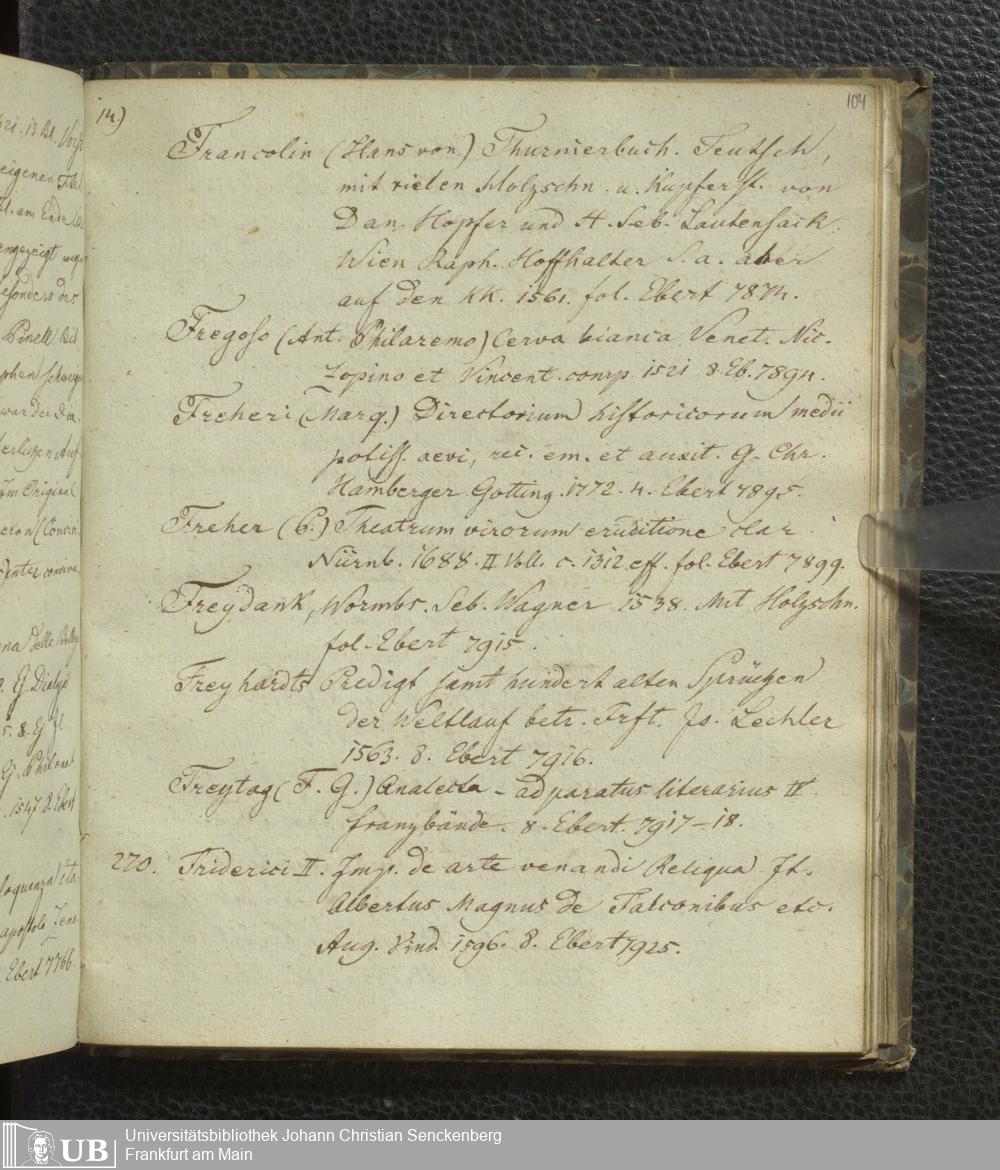 14.)
104
Francolin (Hans von) Thurnierbuch. Teutsch,
mit vielen Holzschn. u. Kupferst. von
Dan. Hopfer und H. Seb. Lautensack.
Wien Raph. Hoffhalter S. a. aber
auf den KK. 1561. fol. Ebert 7874.
Fregoso (Ant. Philaremo) Cerva bianca Venet. Nic.
Zopino et Vincent. comp. 1521 8. Eb. 7894.
Freheri (Marq.) Directorium historicorum medii
potiss. aevi, rec. em. et auxit. G. Chr.
Hamberger Gotting. 1772. 4. Ebert 7895.
Freher (P.) Theatrum virorum eruditione clar
Nürnb. 1688. II Voll. c. 1312 eff. fol. Ebert 7899.
Freydank, Wormbs. Seb. Wagner 1538. Mit Holzschn.
fol. Ebert 7915.
Freyhardts Predigt samt hundert alten Sprüchen
der Weltlauf betr. Frft. Js. Lechler
1563. 8. Ebert 7916.
Freytag (F. G.) Analecta - adparatus literarius IV
franzbände. 8. Ebert. 7917-18.
220. Friderici II. Imp. de arte venandi Reliqua It.
Albertus Magnus de Falconibus etc.
Aug. Vind. 1596. 8. Ebert 7925.
eigenen
am Ende
angezeigt
besonders des
Pinelli
Original
inter
delle
Ebert 7766.
UB
Universitätsbibliothek Johann Christian Senckenberg
Frankfurt am Main